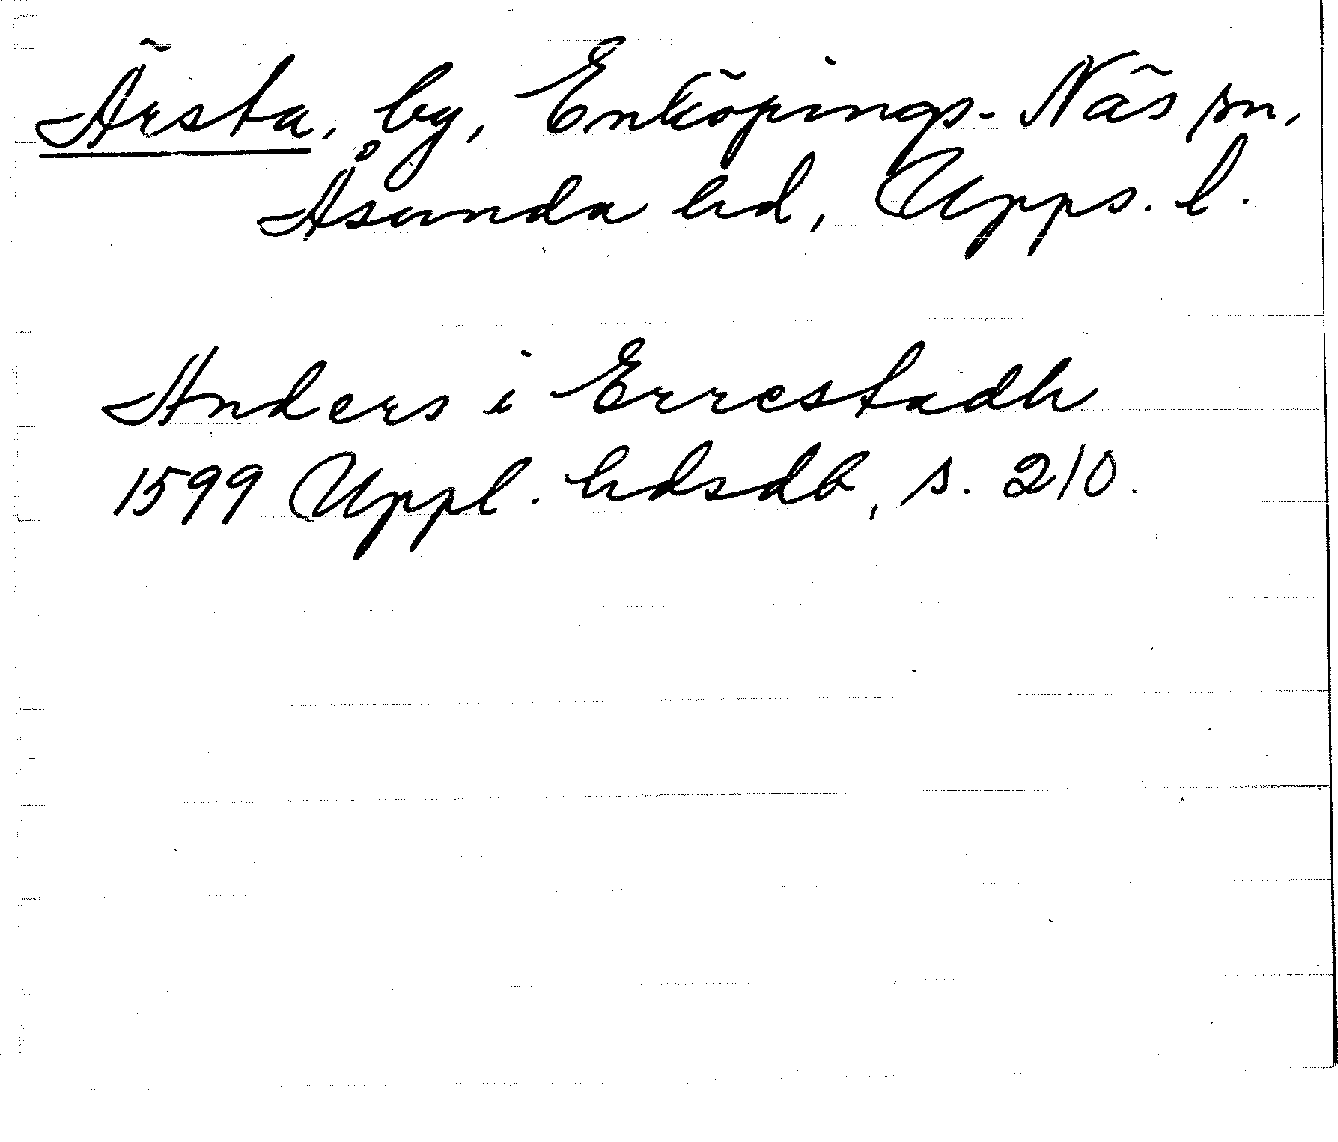 Ärsta, by, Enköpings-Näs sn,
Åsunda hd, Upps. l.
Anders i Errestadh
1599 Uppl. hdsdb, s. 210.